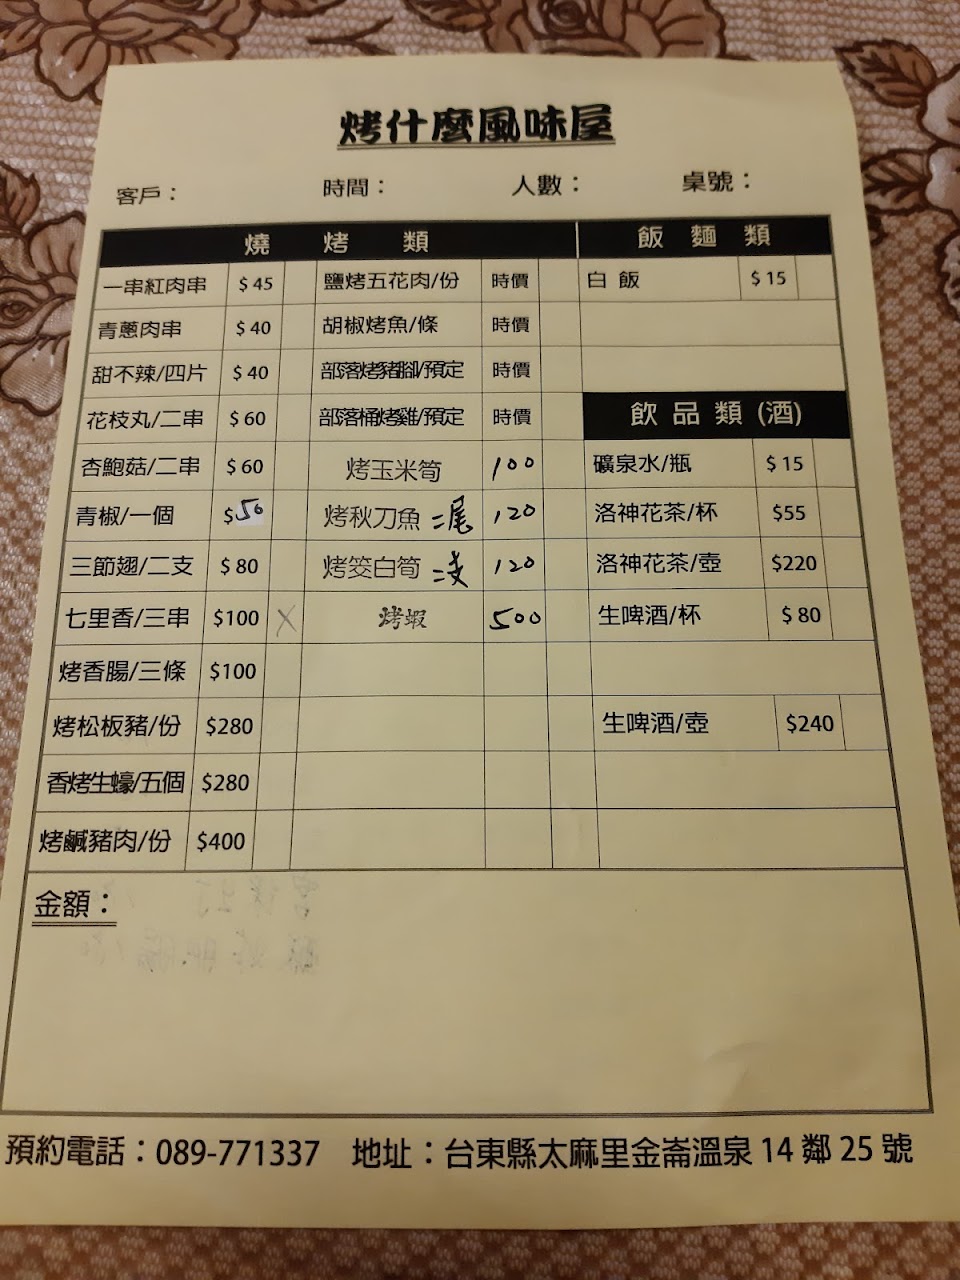 烤什麼風味屋
客戶： 時間： 人數： 桌號：
燒 烤 類 飯 麵 類
一串紅肉串 $45 鹽烤五花肉/份 時價 白 飯 $15
青蔥肉串 $40 胡椒烤魚/條 時價
甜不辣/四片 $40 部落烤豬腳/預定 時價
花枝丸/二串 $60 部落桶烤雞/預定 時價 飲 品 類 (酒)
杏鮑菇/二串 $60 烤玉米筍 100 礦泉水/瓶 $15
青椒/一個 $50 烤秋刀魚 二尾 120 洛神花茶/杯 $55
三節翅/二支 $80 烤筊白筍 二支 120 洛神花茶/壺 $220
七里香/三串 $100 X 烤蝦 500 生啤酒/杯 $80
烤香腸/三條 $100
烤松板豬/份 $280 生啤酒/壺 $240
香烤生蠔/五個 $280
烤鹹豬肉/份 $400
金額：
預約電話：089-771337 地址：台東縣太麻里金崙溫泉 14 鄰 25 號